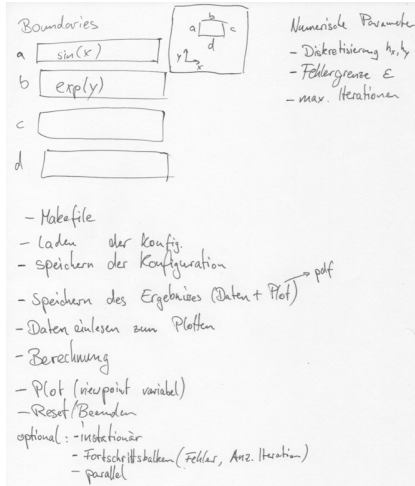 Boundaries
a sin(x)
b exp(y)
c
d
b
a c
d
y
x
Numerische Parameter
- Diskretisierung hx, hy
- Fehlergrenze ε
- max. Iterationen
- Makefile
- Laden der Konfig.
- speichern der Konfiguration
- Speichern des Ergebnisses (Daten + Plot) → pdf
- Daten einlesen zum Plotten
- Berechnung
- Plot (viewpoint variabel)
- Reset/Beenden
optional: - instationär
- Fortschrittsbalken (Fehler, Anz. Iteration)
- parallel